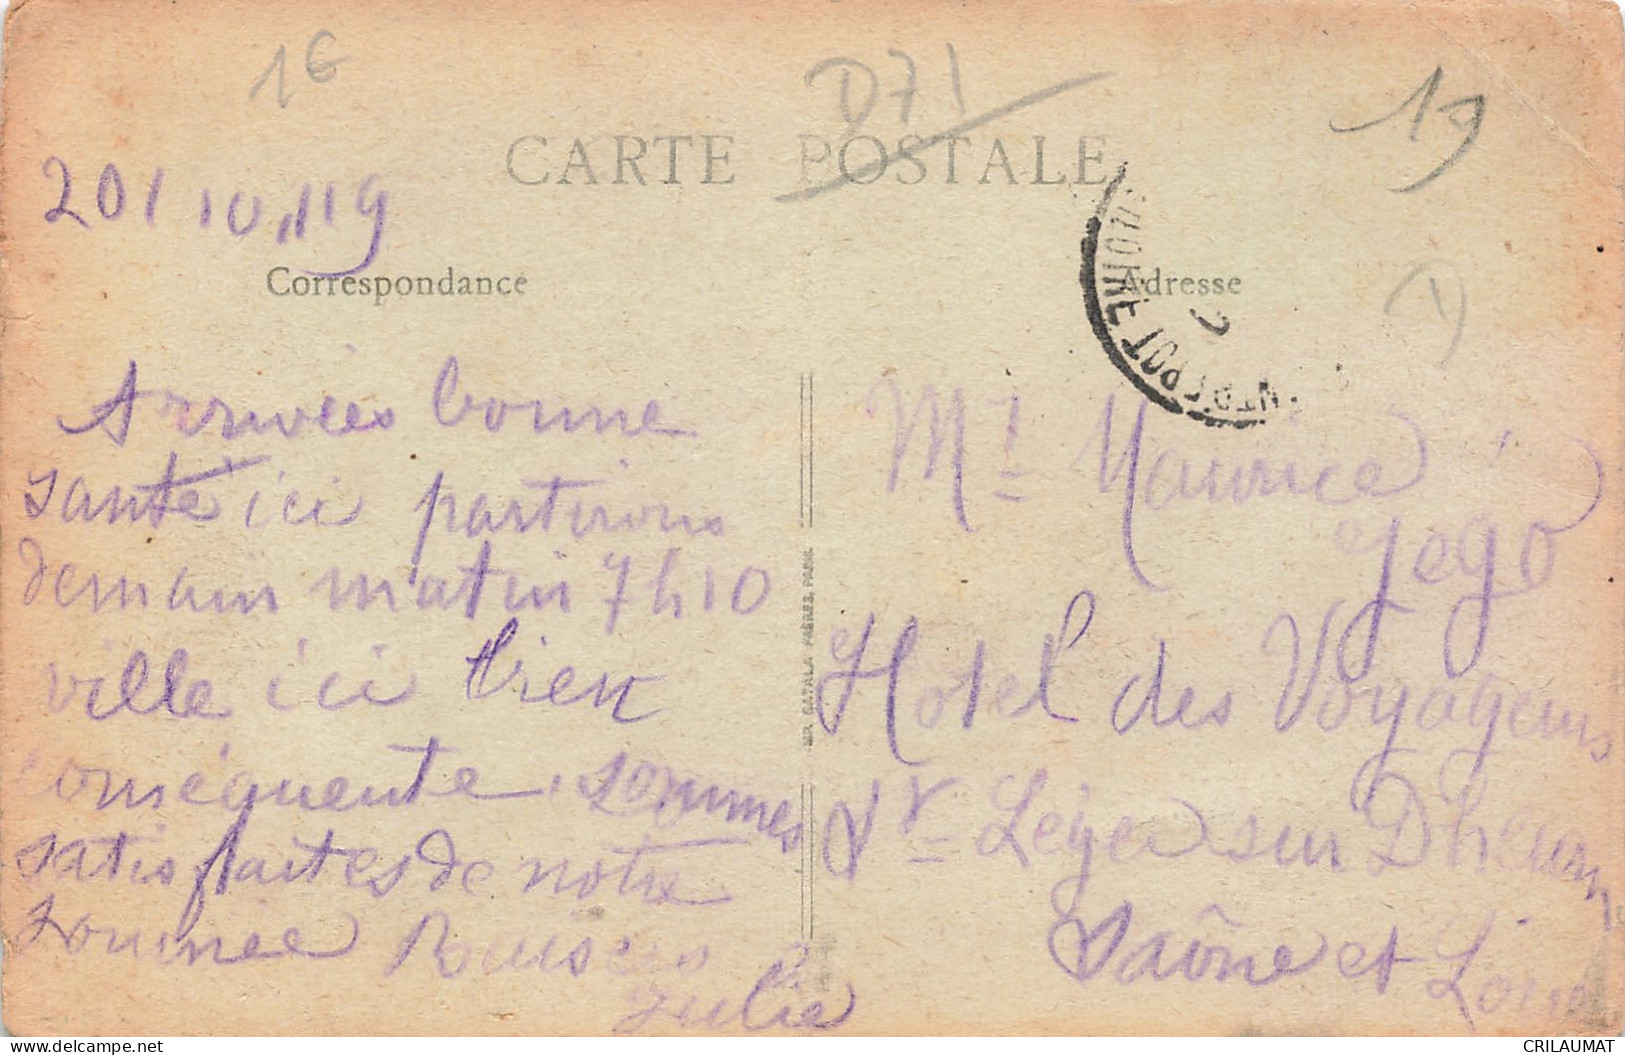 1€
D71
19
CARTE POSTALE
20/10/19
Correspondance
Adresse
Arrivées bonne
santé ici partirons
demain matin 7h10
ville ici bien
conséquente. sommes
satisfaites de notre
tournée Baisers
Julie
IMP. CATALA FRÈRES, PARIS
Mr Maurice
Jego
Hotel des Voyageurs
St Léger sur Dheune
Saône et Loire
www.delcampe.net
CRILAUMAT